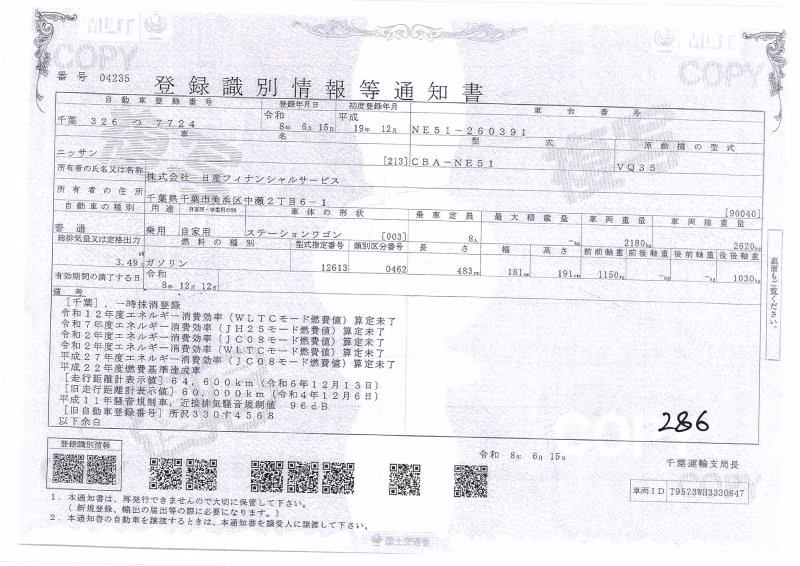 COPY
番号 04235
登録識別情報等通知書
自動車登録番号 登録年月日 初度登録年月 車台番号
千葉 326 つ 7724 令和 8年 6月 15日 平成 19年 12月 NE51-260391
車名 型式 原動機の型式
ニッサン [213] CBA-NE51 VQ35
所有者の氏名又は名称 株式会社 日産フィナンシャルサービス
所有者の住所 千葉県千葉市美浜区中瀬2丁目6-1 [90040]
自動車の種別 用途 自家用・事業用の別 車体の形状 乗車定員 最大積載量 車両重量 車両総重量
普通 乗用 自家用 ステーションワゴン [003] 8人 -kg 2180kg 2620kg
総排気量又は定格出力 燃料の種別 型式指定番号 類別区分番号 長さ 幅 高さ 前前軸重 前後軸重 後前軸重 後後軸重
3.49 ガソリン 12613 0462 483cm 181cm 191cm 1150kg -kg -kg 1030kg
有効期間の満了する日 令和 8年 12月 12日
備考
[千葉], 一時抹消登録
令和12年度エネルギー消費効率(WLTCモード燃費値)算定未了
令和7年度エネルギー消費効率(JH25モード燃費値)算定未了
令和2年度エネルギー消費効率(JC08モード燃費値)算定未了
令和2年度エネルギー消費効率(WLTCモード燃費値)算定未了
平成27年度エネルギー消費効率(JC08モード燃費値)算定未了
平成22年度燃費基準達成車
[走行距離計表示値] 64,600km(令和6年12月13日)
[旧走行距離計表示値] 60,000km(令和4年12月6日)
平成11年騒音規制車, 近接排気騒音規制値 96dB
[旧自動車登録番号] 所沢330す4568
以下余白
裏面もご覧ください。
286
登録識別情報
令和 8年 6月 15日
千葉運輸支局長
車両ID T9573WH3330847
1. 本通知書は、再発行できませんので大切に保管して下さい。
(新規登録、輸出の届出等の際に必要になります。)
2. 本通知書の自動車を譲渡するときは、本通知書を譲受人に譲渡して下さい。
COPY
国土交通省